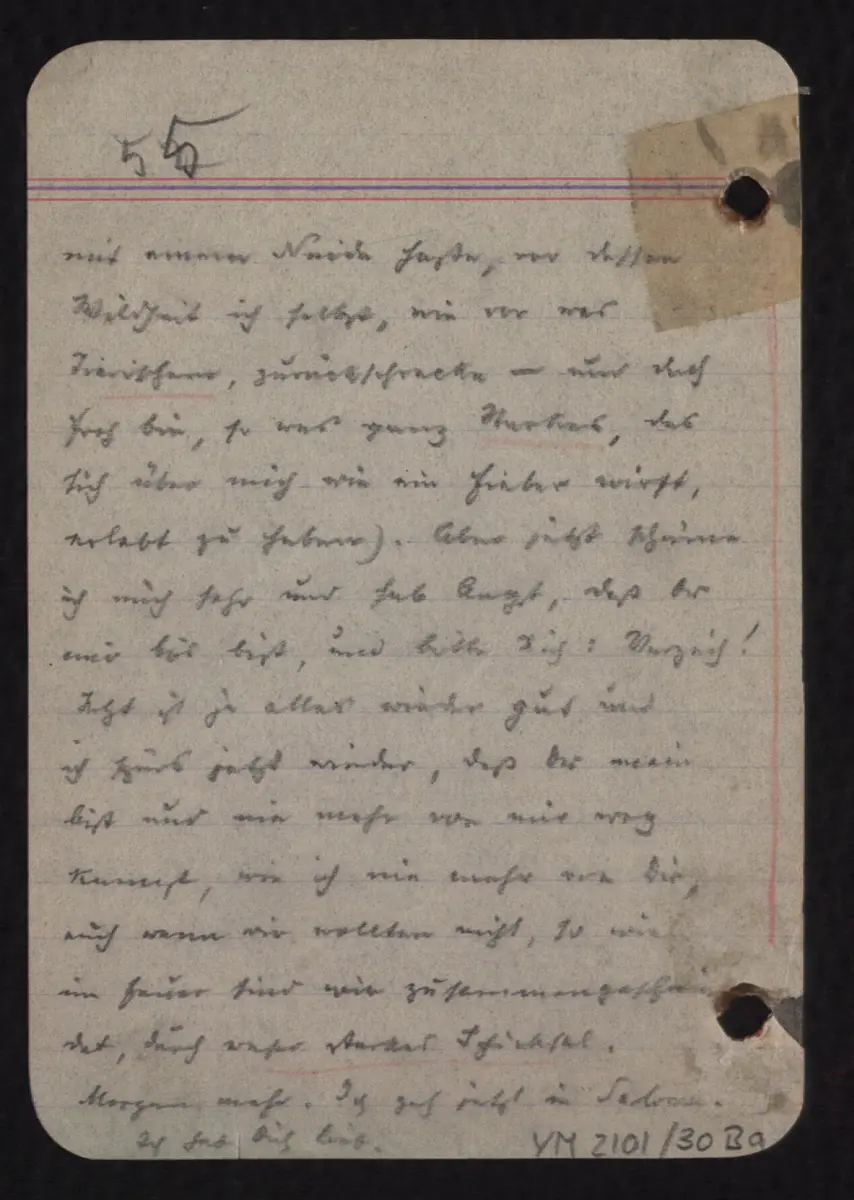 55
mit einem Neide haßte, vor dessen
Wildheit ich selbst, wie vor was
Tierischem, zurückschrecke – und doch
froh bin, so was ganz Starkes, das
sich über mich wie ein Fieber wirft,
erlebt zu haben). Aber jetzt schäme
ich mich sehr und hab Angst, daß Du
mir bös bist, und bitte Dich: Verzeih!
Jetzt ist ja alles wieder gut und
ich spürs jetzt wieder, daß Du mein
bist und nie mehr von mir weg
kannst, wie ich nie mehr von Dir,
auch wenn wir wollten nicht, so wie
im Feuer sind wir zusammengeschmie
det, durch unser starkes Schicksal.
Morgen mehr. Ich geh jetzt in Salome.
Ich hab Dich lieb.
YM 2101/30 Ba